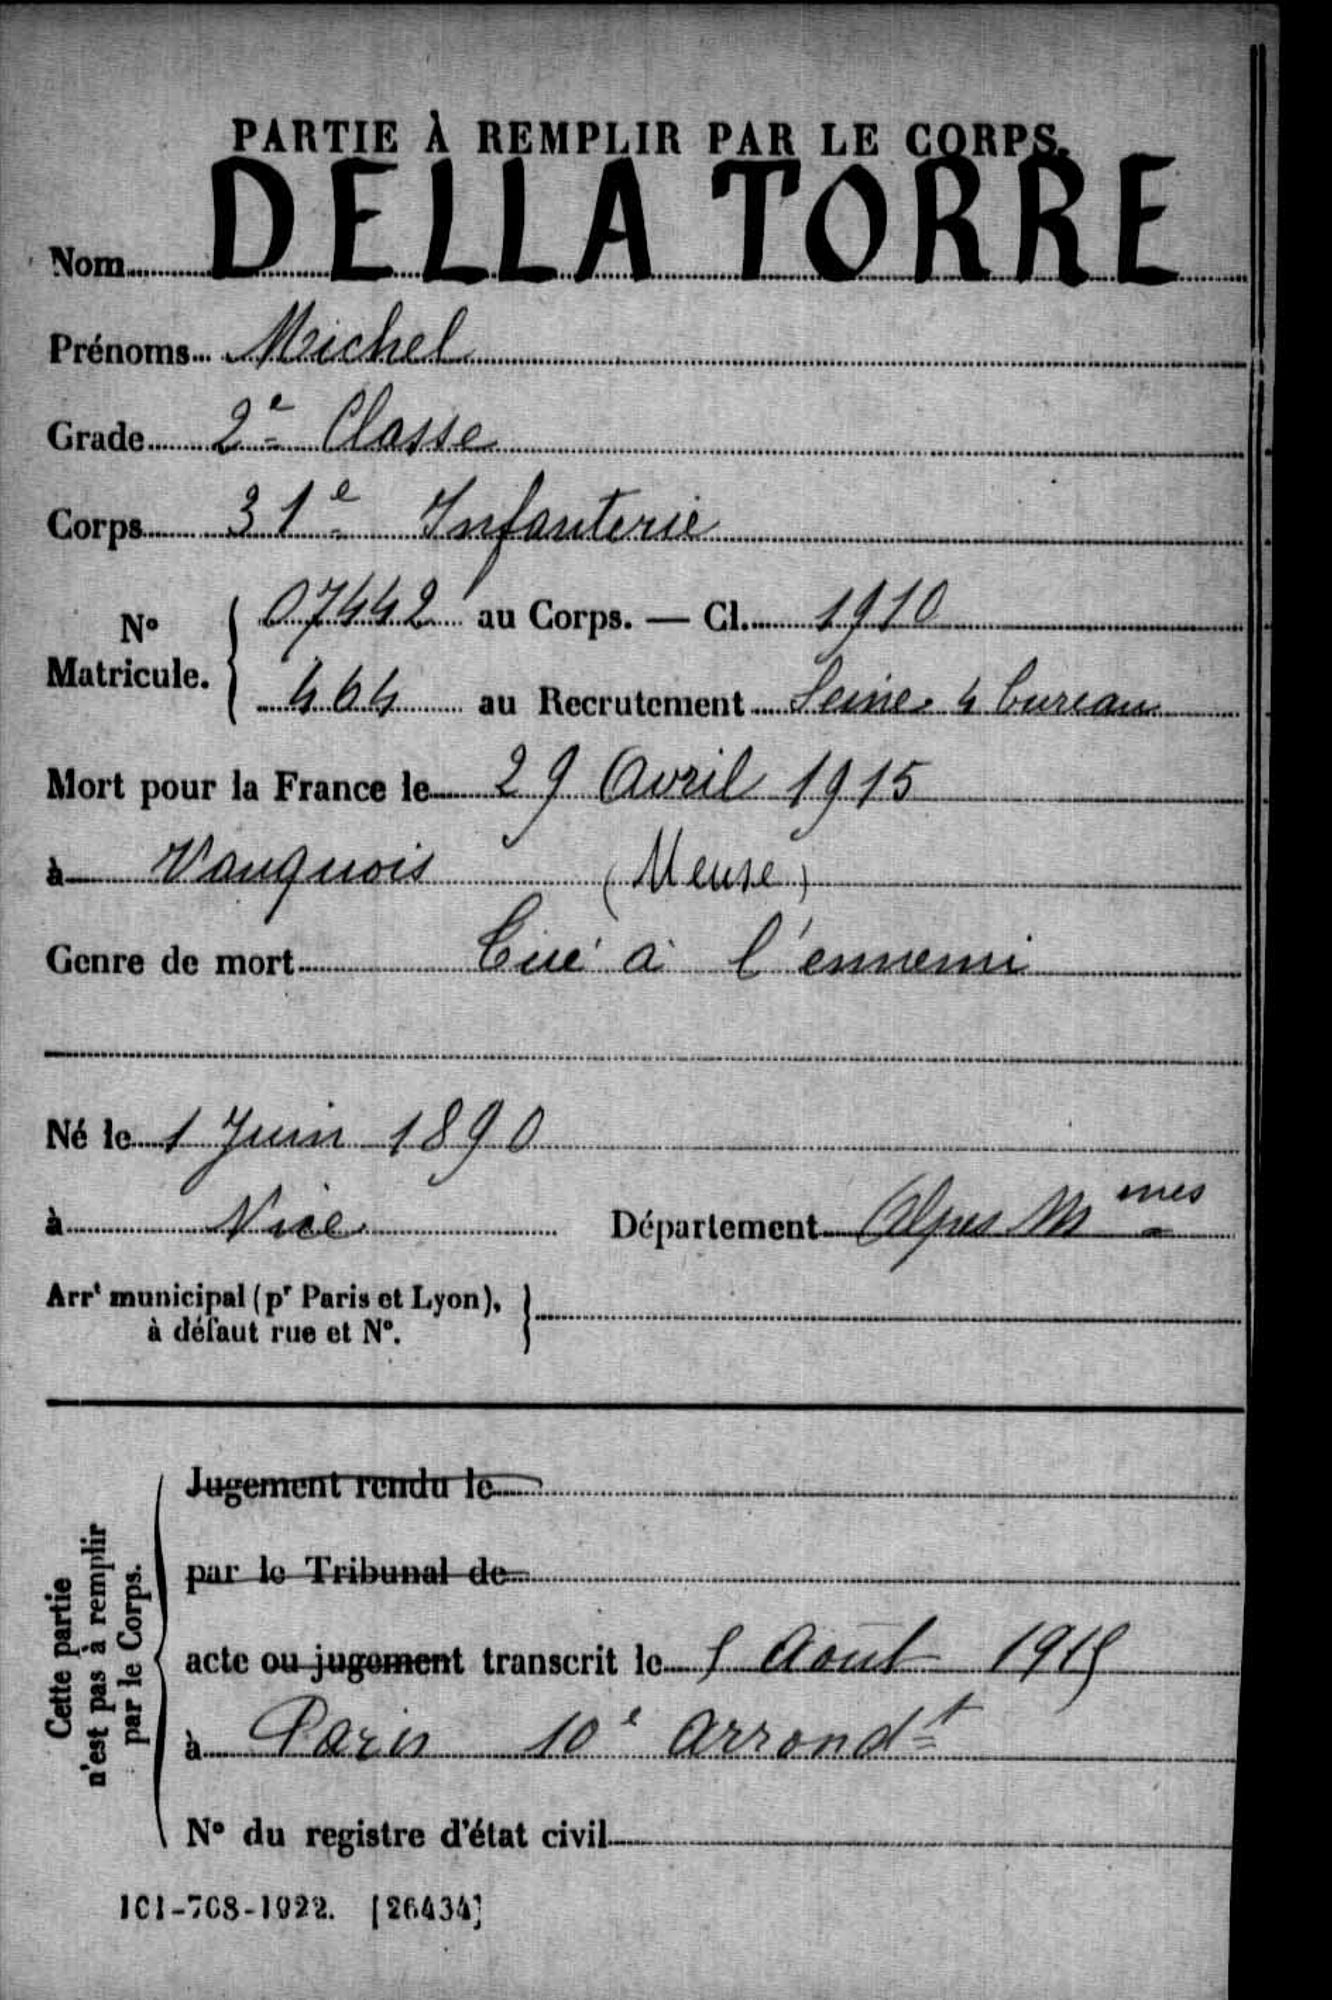 PARTIE À REMPLIR PAR LE CORPS.
Nom DELLA TORRE
Prénoms Michel
Grade 2e Classe
Corps 31e Infanterie
No Matricule. { 07442 au Corps. — Cl. 1910
464 au Recrutement Seine 4 bureau
Mort pour la France le 29 Avril 1915
à Vauquois (Meuse)
Genre de mort Tué à l'ennemi
Né le 1 Juin 1890
à Nice Département Alpes Mmes
Arrt municipal (pr Paris et Lyon),
à défaut rue et No. }
Cette partie
n'est pas à remplir
par le Corps.
Jugement rendu le
par le Tribunal de
acte ou jugement transcrit le Août 1915
à Paris 10e arrondt
No du registre d'état civil
101-708-1922. [26434]